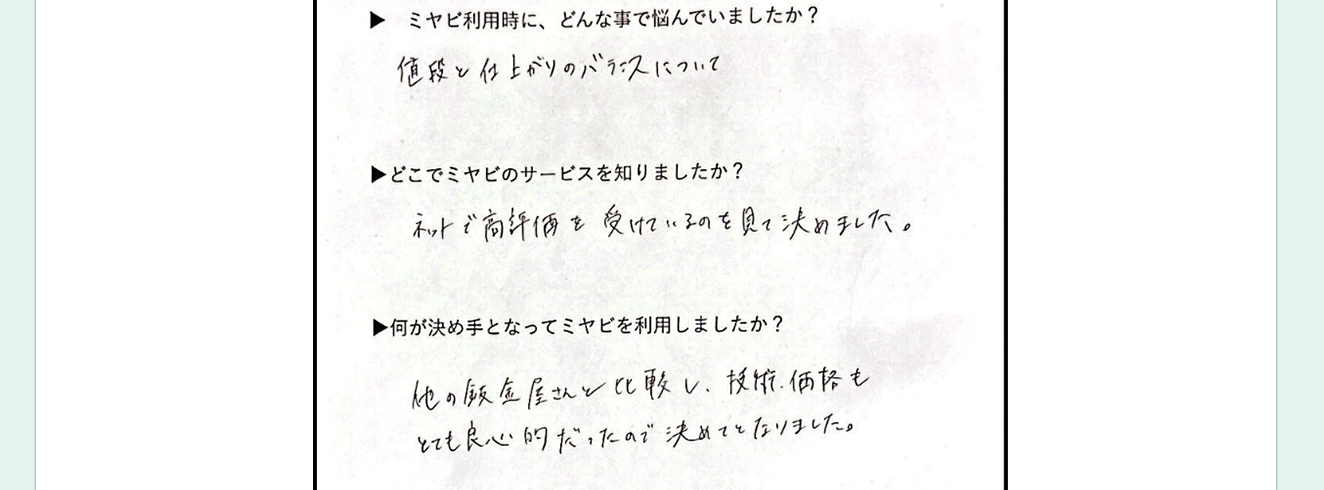 ▶ ミヤビ利用時に、どんな事で悩んでいましたか？
値段と仕上がりのバランスについて
▶どこでミヤビのサービスを知りましたか？
ネットで高評価を受けているのを見て決めました。
▶何が決め手となってミヤビを利用しましたか？
他の鈑金屋さんと比較し、技術、価格も
とても良心的だったので決めてとなりました。